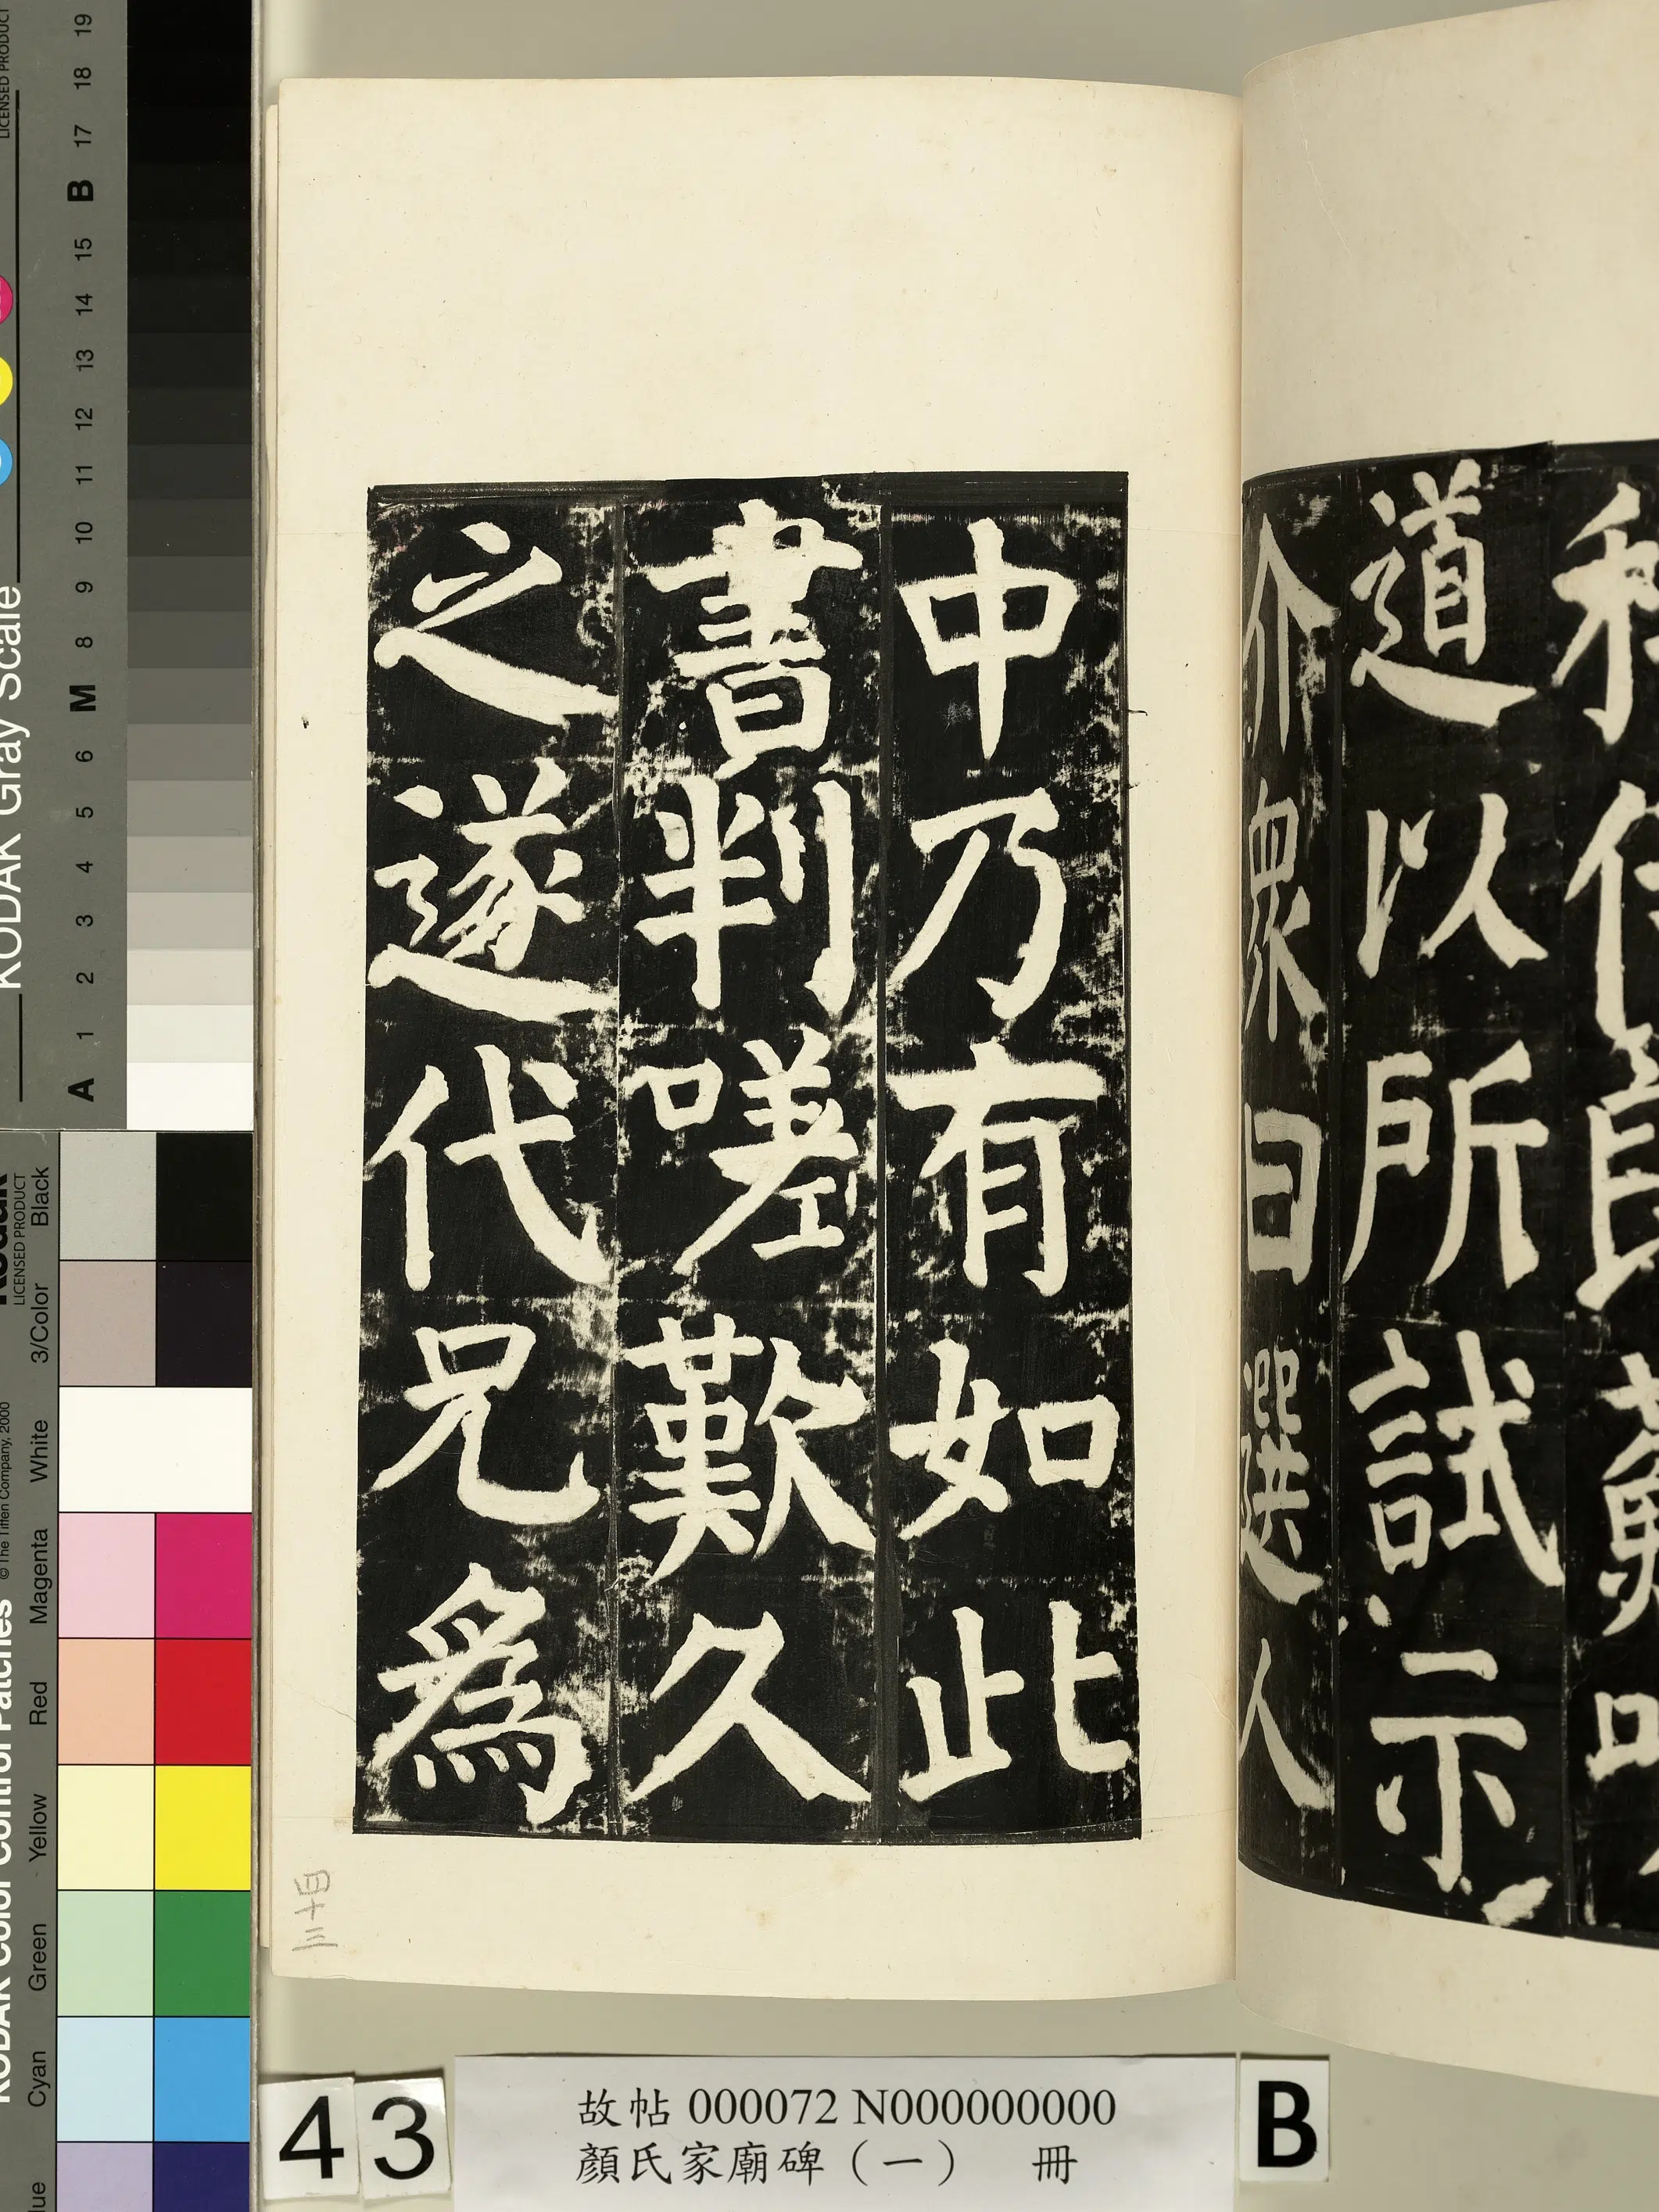 道以所試示
介衆曰選人
中乃有如此
書判嗟歎久
之遂代兄爲
三十四
43
故帖 000072 N000000000
顏氏家廟碑（一） 冊
B
KODAK Gray Scale
LICENSED PRODUCT
A 1 2 3 4 5 6 M 8 9 10 11 12 13 14 15 B 17 18 19
KODAK Color Control Patches
© The Tiffen Company, 2000
Kodak
LICENSED PRODUCT
Cyan Green Yellow Red Magenta White 3/Color Black